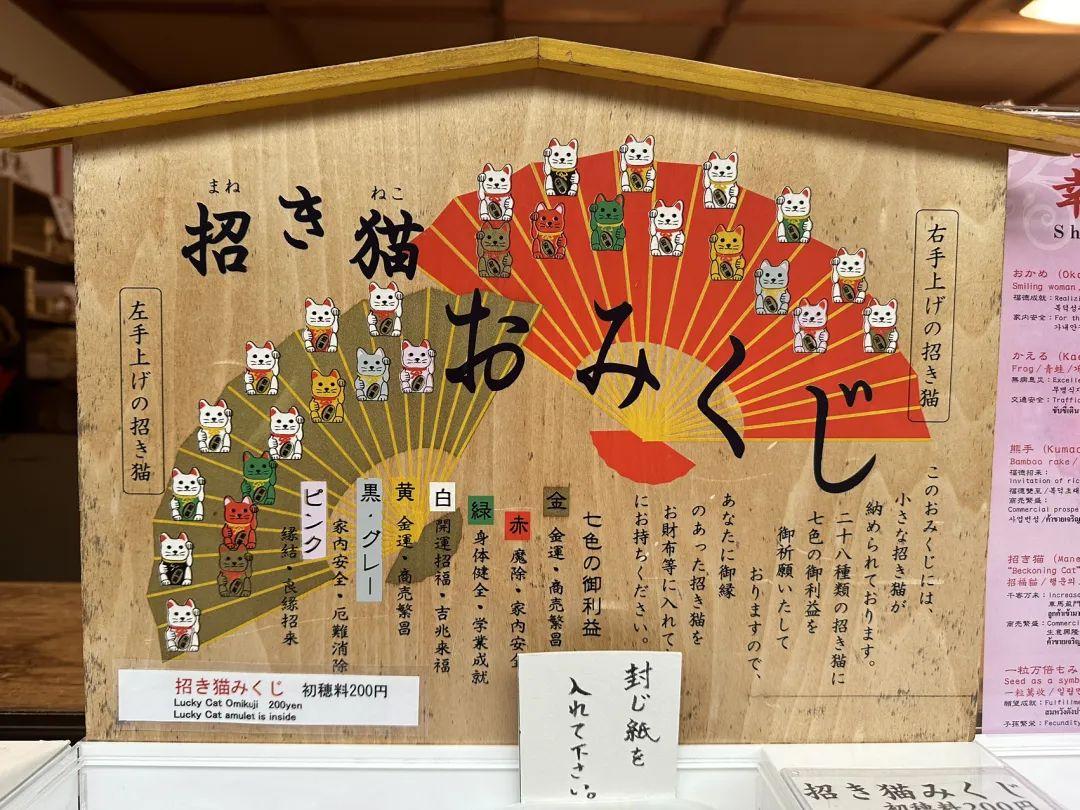 まね
ねこ
招き猫
おみくじ
右手上げの招き猫
左手上げの招き猫
このおみくじには、
小さな招き猫が
納められております。
二十八種類の招き猫に
七色の御利益を
御祈願いたして
おりますので、
あなたに御縁
のあった招き猫を
お財布等に入れて
にお持ちください。
七色の御利益
金 金運・商売繁昌
赤 魔除・家内安全
緑 身体健全・学業成就
白 開運招福・吉兆来福
黄 金運・商売繁昌
黒・グレー 家内安全・厄難消除
ピンク 縁結・良縁招来
招き猫みくじ 初穂料200円
Lucky Cat Omikuji 200yen
Lucky Cat amulet is inside
封じ紙を
入れて下さい。
招き猫みくじ
幸
Sh
おかめ (Oka
Smiling woman
福徳成就：Realiz
家内安全：For th
かえる (Kae
Frog/青蛙/개
無病息災：Excelle
交通安全：Traffic
熊手 (Kuma
Bamboo rake/
福徳招来：
Invitation of ric
商売繁盛：
Commercial prospe
招き猫 (Mane
"Beckoning Cat"
千客万来：Increase
商売繁盛：Commerci
一粒万倍もみ
Seed as a symb
願望成就：Fulfillm
子孫繁栄：Fecundity